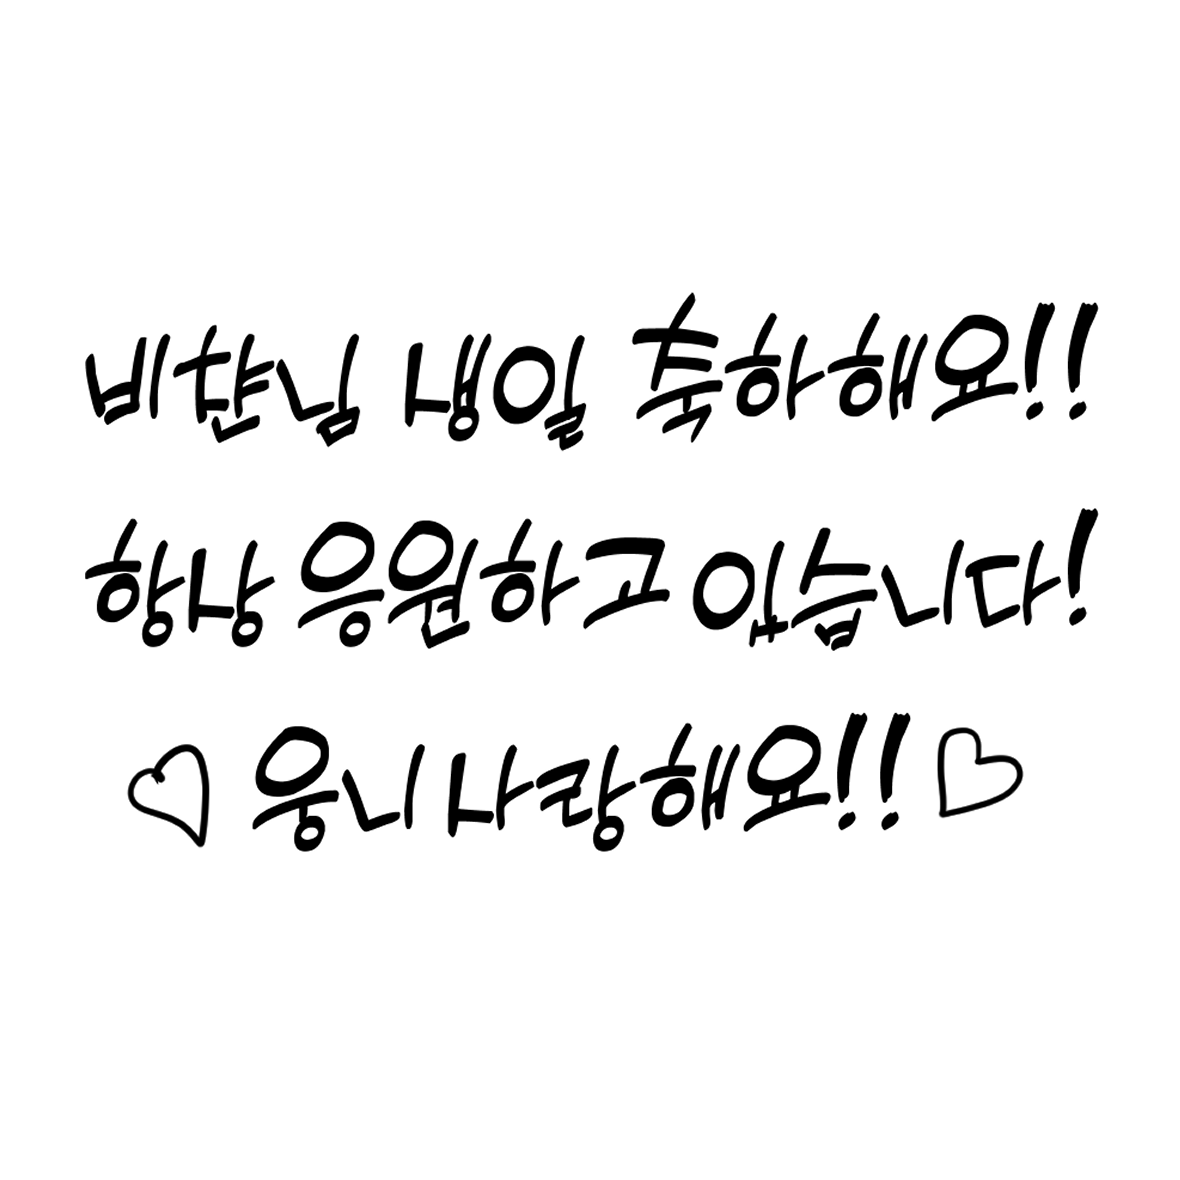 비챤님 생일 축하해요!!
항상 응원하고 있습니다!
♡ 웅니 사랑해요!! ♡